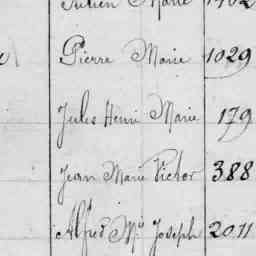 Julien Marie 1402
Pierre Marie 1029
Jules Henri Marie 179
Jean Marie Victor 388
Alfred Mie Joseph 2011